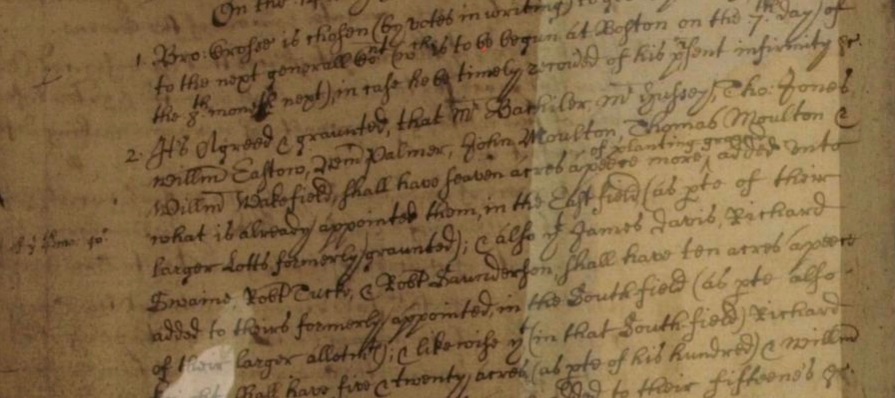 On the
1. Bro: Crosse is chosen (by votes in writing) to
to the next generall Cort wch is to be begun at Boston on the 7th day of
the 8th moneth next), in case he be timely recoverd of his prsent infirmity &c.
2. It's Agreed & graunted, that Mr Bachiler, Mr Hussey, Tho: Jones,
Willm Eastow, Wm Palmer, John Moulton, Thomas Moulton &
of planting ground
Willm Wakefield, shall have seaven acres apeece more, added unto
what is already appointed them, in the East field (as pte of their
larger Lotts formerly graunted); & also yt James Davis, Richard
Swaine, Robt Tuck, & Robt Saunderson, shall have ten acres apeece
added to theirs formerly appointed, in the South field (as pte also
of their larger allotmts); & likewise yt (in that South field) Richard
shall have five & twenty acres (as pte of his hundred) & Willm
added to their fifteene's &c.